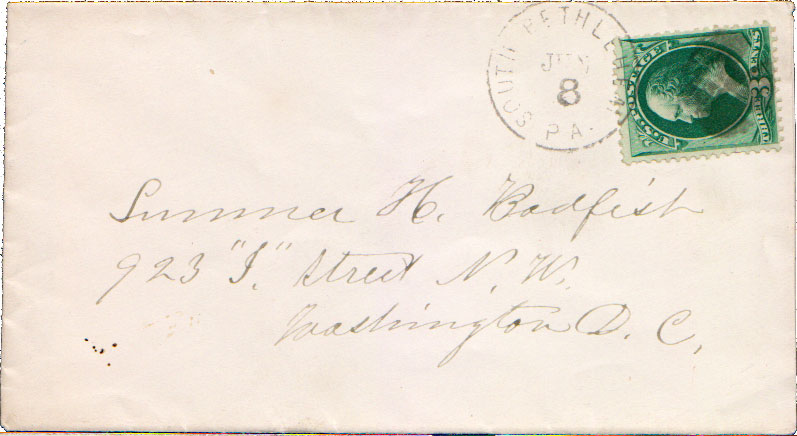 SOUTH BETHLEHEM
JUN
8
PA.
U.S. POSTAGE
3
Sumner H. Bodfish
923 "I" Street N. W.
Washington D. C.